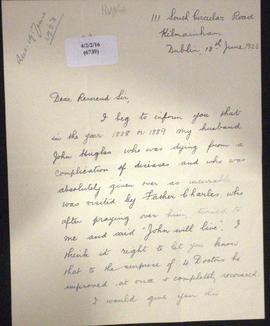 Hughes
Ans 19 June
1923
4/2/2/16
(6739)
111 South Circular Road
Kilmainham
Dublin, 18th June 1923
Dear Reverend Sir,
I beg to inform you that
in the year 1888 or 1889 my husband
John Hughes who was dying from a
complication of diseases and who was
absolutely given over as incurable
was visited by Father Charles, who
after praying over him turned to
me and said "John will live". I
think it right to let you know
that to the surprise of 4 Doctors he
improved at once & completely recovered
I would give you this